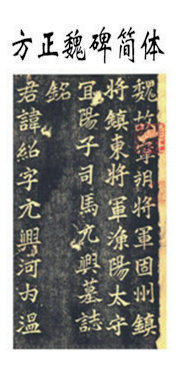 方正魏碑简体
魏故寧朔將軍固州鎮
將鎮東將軍漁陽太守
冝陽子司馬元興墓誌
銘
君諱紹字元興河內溫